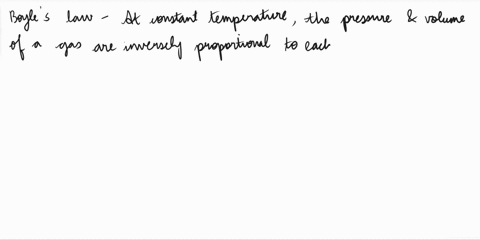 Boyle's law - At constant temperature, the pressure & volume
of a gas are inversely proportional to each